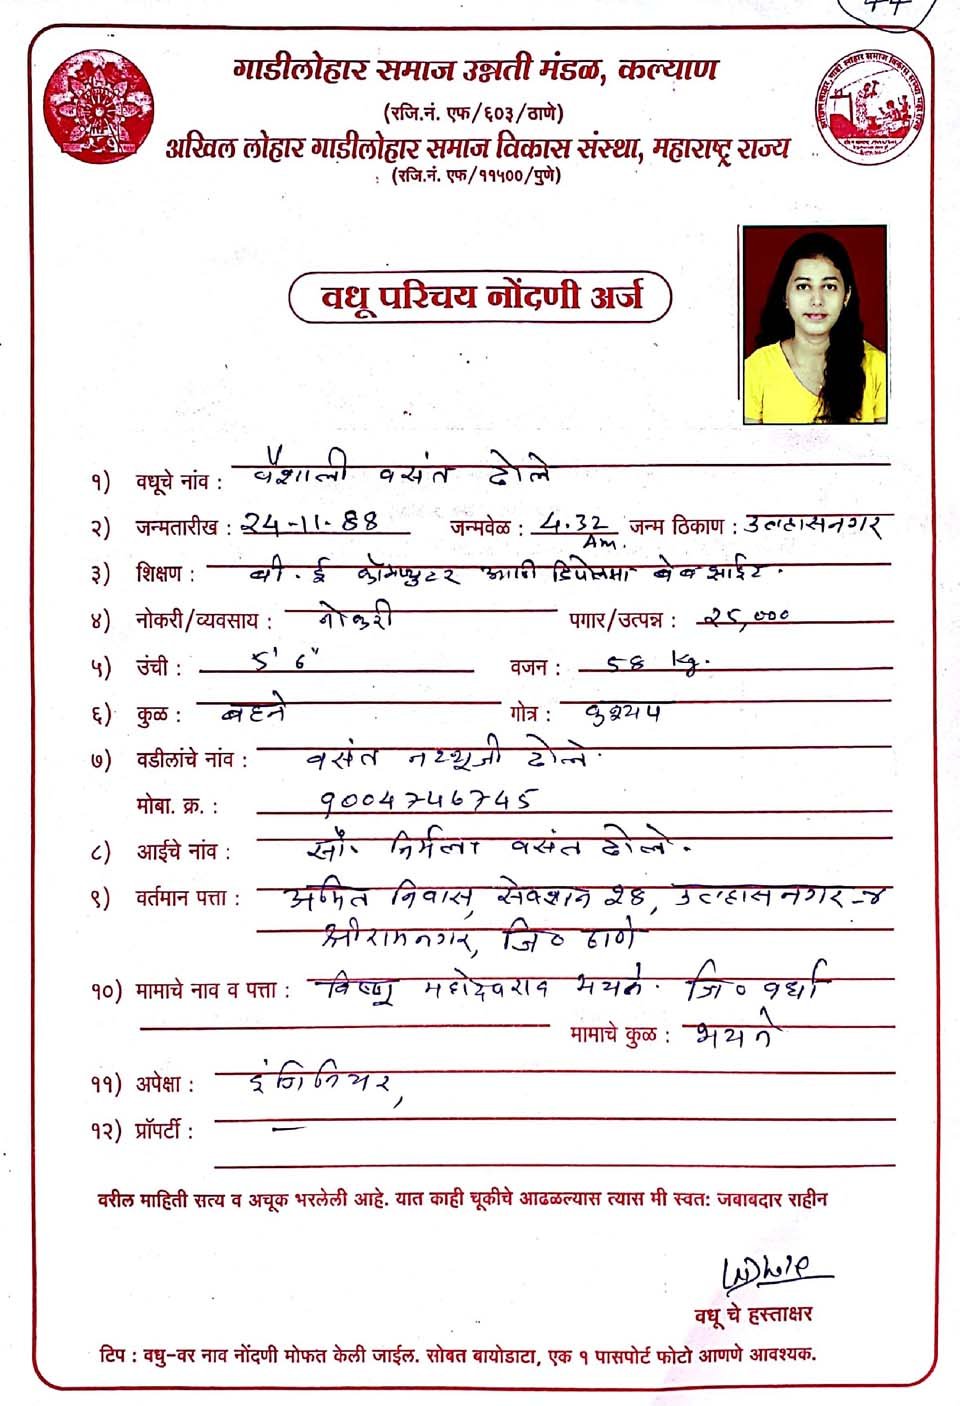 44
गाडीलोहार समाज उन्नती मंडळ, कल्याण
(रजि.नं. एफ/६०३/ठाणे)
अखिल लोहार गाडीलोहार समाज विकास संस्था, महाराष्ट्र राज्य
(रजि.नं. एफ/११५००/पुणे)
वधू परिचय नोंदणी अर्ज
१) वधूचे नांव : वैशाली वसंत ढोले
२) जन्मतारीख : 24-11-88 जन्मवेळ : 4.32 Am. जन्म ठिकाण : उल्हासनगर
३) शिक्षण : बी.ई कॉम्प्युटर आणि डिप्लोमा वेबसाईट.
४) नोकरी/व्यवसाय : नोकरी पगार/उत्पन्न : २5,000
५) उंची : 5' 6" वजन : 58 kg.
६) कुळ : बहने गोत्र : कश्यप
७) वडीलांचे नांव : वसंत नत्थूजी ढोले.
मोबा. क्र. : 9004746745
८) आईचे नांव : सौ. निर्मला वसंत ढोले.
९) वर्तमान पत्ता : अमित निवास, सेक्शन २8, उल्हासनगर-४
श्रीरामनगर, जि० ठाणे
१०) मामाचे नाव व पत्ता : विष्णू महादेवराव भयने. जि० वर्धा
मामाचे कुळ : भयने
११) अपेक्षा : इंजिनियर,
१२) प्रॉपर्टी : —
वरील माहिती सत्य व अचूक भरलेली आहे. यात काही चूकीचे आढळल्यास त्यास मी स्वतः जबाबदार राहीन
वधू चे हस्ताक्षर
टिप : वधु-वर नाव नोंदणी मोफत केली जाईल. सोबत बायोडाटा, एक १ पासपोर्ट फोटो आणणे आवश्यक.